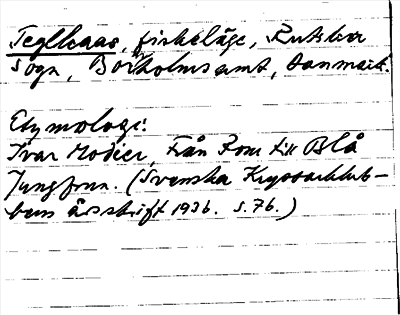 Teglkaas, fiskeläge, Rutsker
Sogn, Bornholmsamt, Danmark.
Etymologi:
Ivar Modéer, Från Rom till Blå
Jungfrun. (Svenska Kryssarklub-
bens årsskrift 1936. s. 76.)